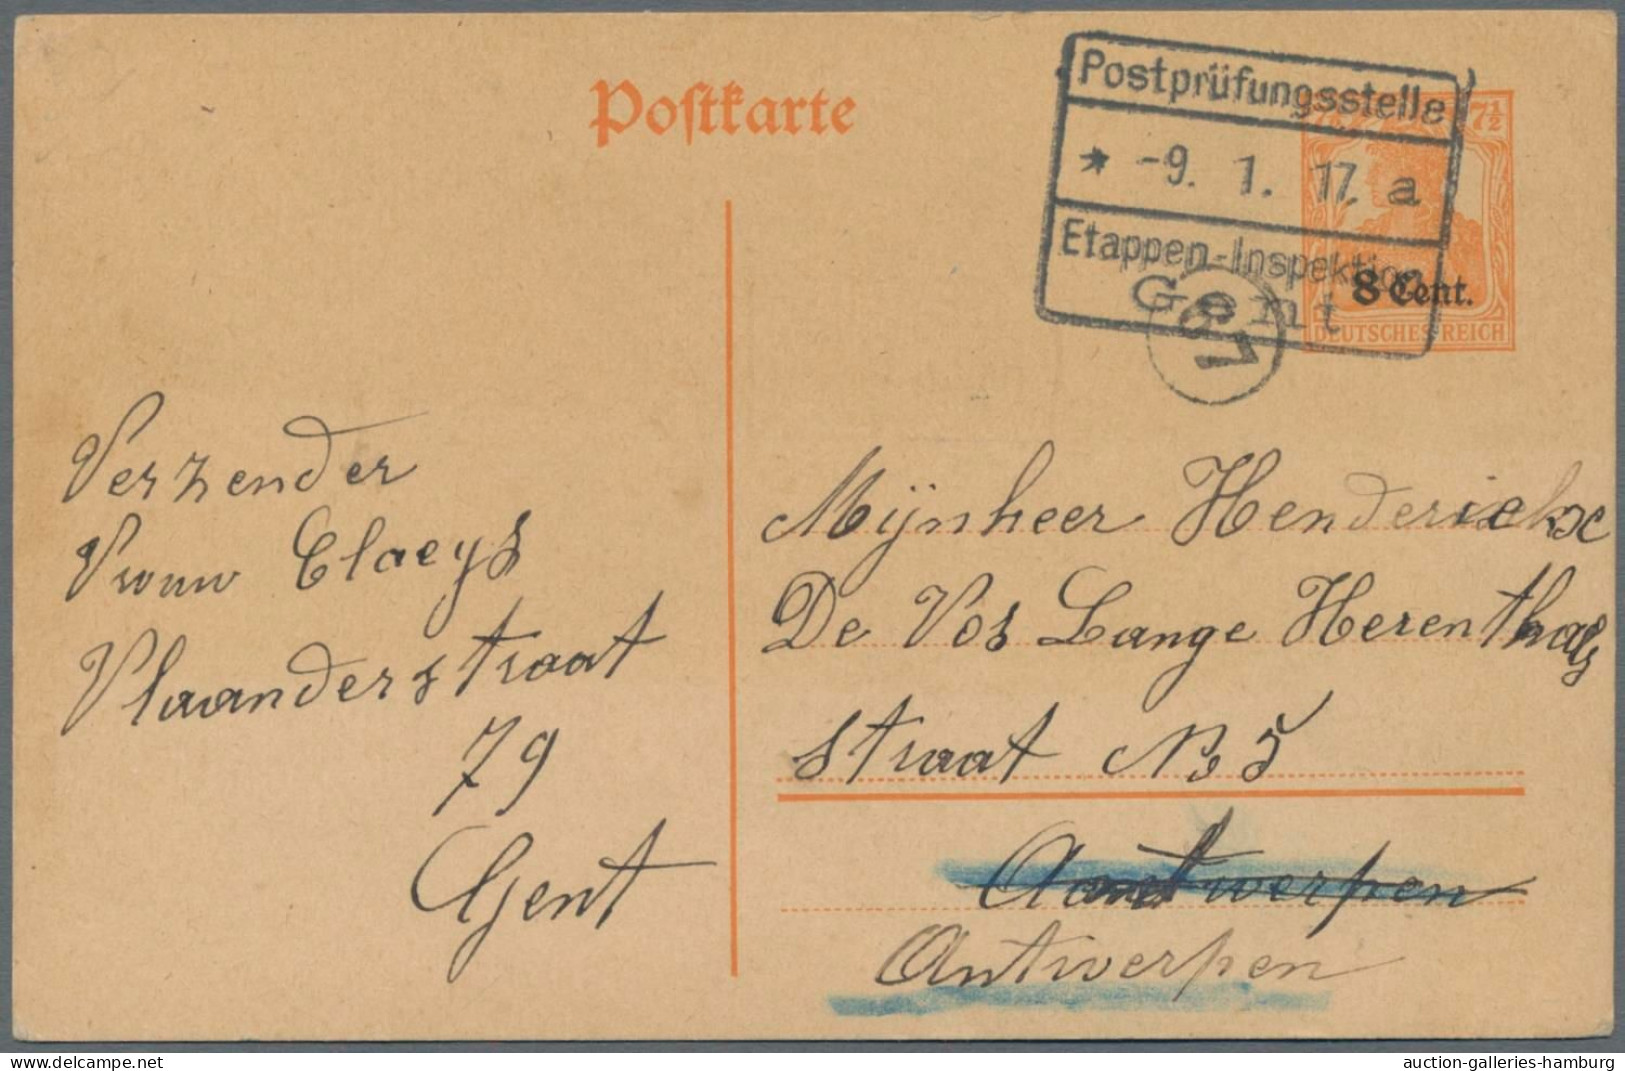 Postkarte
Postprüfungsstelle
* -9. 1. 17. a
Etappen-Inspektion
Gent
7½
8 Cent.
DEUTSCHES REICH
87
Verzender
Vrouw Claeys
Vlaanderstraat
79
Gent
Mijnheer Henderickx
De Vos Lange Herenthals
straat No 5
Antwerpen
Antwerpen
auction-galleries-hamburg